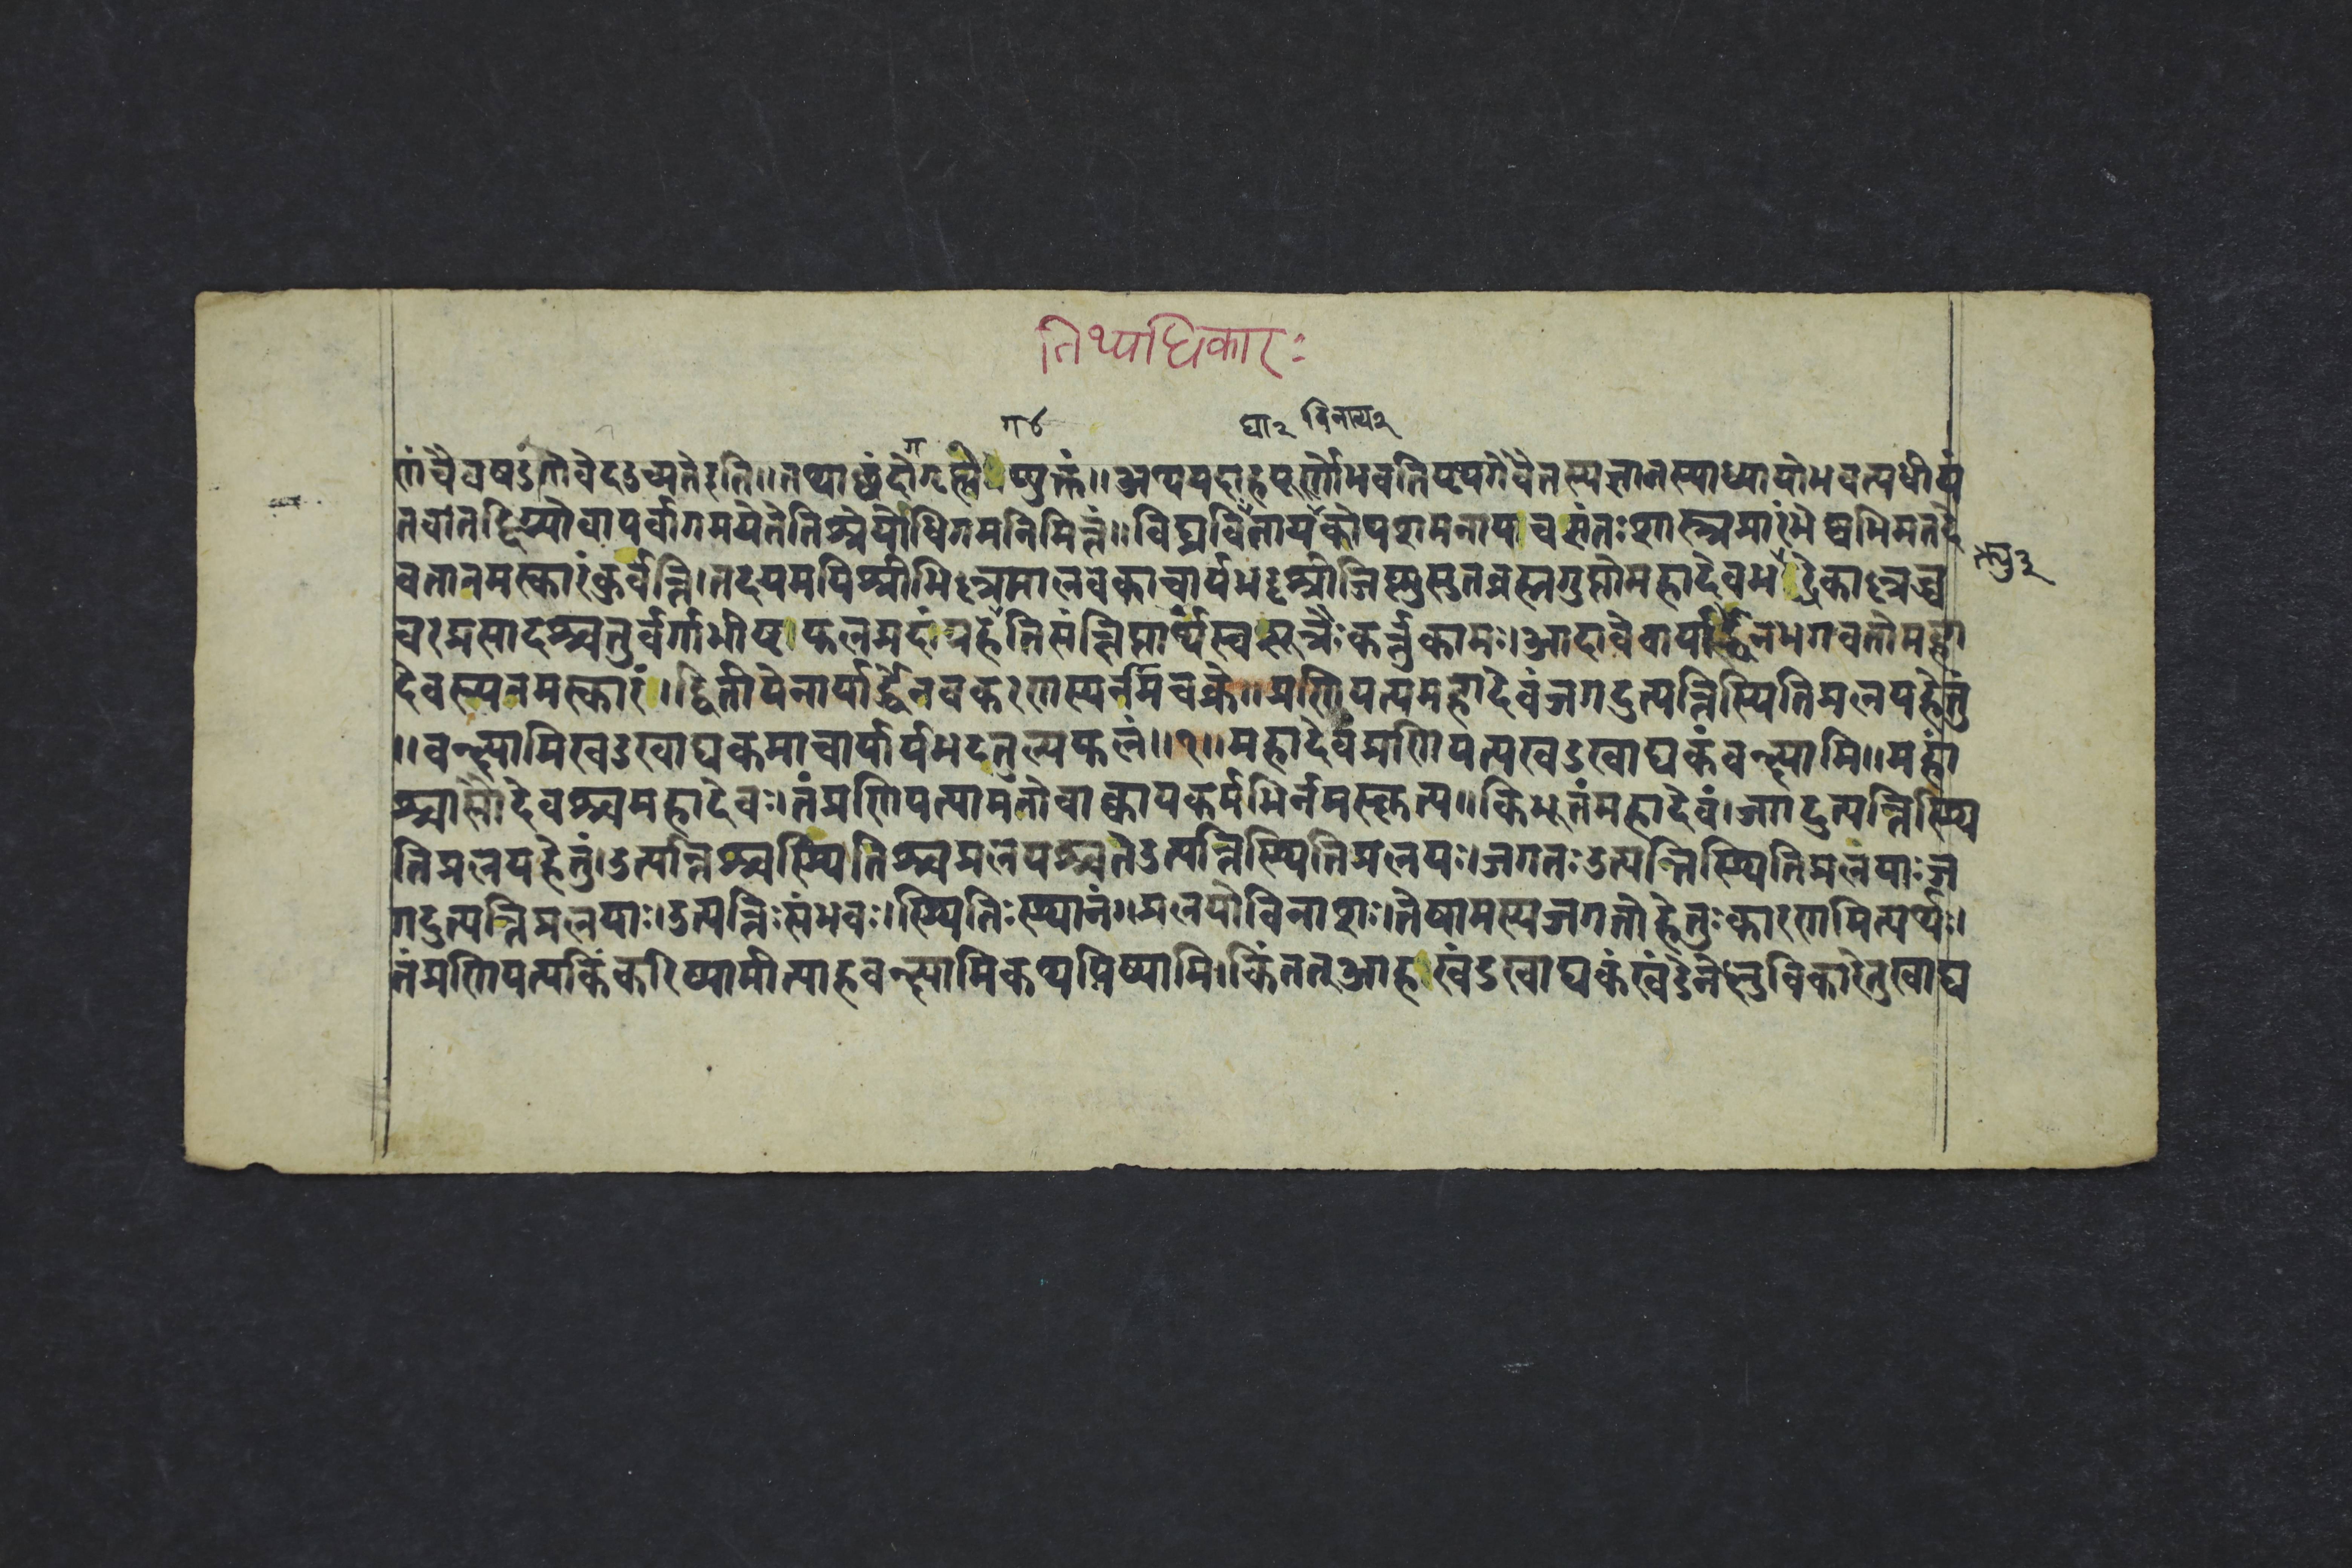 तिथ्यधिकारः
ग ४ घा२ विनाय२
णां चैव षडंगो वेद उच्यत इति॥ तथा छंदोगृह्ये प्युक्तं॥ अथ यदाह पूर्णो भवति एवैतस्य ज्ञानस्याध्यायो भवत्यधीयं
वा पर्वागमयेतेति श्रेयोधिगमनिमित्तं॥ विघ्नविनायकोपशमनाय च संतः शास्त्रप्रारंभेष्वभिमतदे
त्यु२
वतानमस्कारं कुर्वन्ति। तदयमपि श्रीभि मालवकाचार्यभट्टश्रीजिष्णुसुतब्रह्मगुप्तो महादेव
चरप्रसादश्चतुर्वर्गाभीष्टफलप्रदो हेति कर्त्तुकामः। आदावेवार्यार्द्धेन भगवतो महा
देवस्य नमस्कारं। द्वितीयेनार्यार्द्धेन चक्रे॥ प्रणिपत्य महादेवं जगदुत्पत्तिस्थितिप्रलयहेतुं
॥ वक्ष्यामि खडखाद्यकमाचार्यार्यभटतुल्यफलं॥ १॥ महादेवं प्रणिपत्य खडखाद्यकं वक्ष्यामि॥ महां
श्चासौ देवश्च महादेवः। तं प्रणिपत्य मनोवाक्कायकर्मभिर्नमस्कृत्य॥ किंभूतं महादेवं। जगदुत्पत्तिस्थि
तिप्रलयहेतुं। उत्पत्तिश्च स्थितिश्च प्रलयश्च ते उत्पत्तिस्थितिप्रलयः। जगतः उत्पत्तिस्थितिप्रलयाः ज
गदुत्पत्तिप्रलयाः। उत्पत्तिः संभवः। स्थितिः स्थानं। प्रलयो विनाशः। तेषामस्य जगतो हेतुः कारणमित्यर्थः।
तं प्रणिपत्य किं करिष्यामीत्याह वक्ष्यामि कथयिष्यामि। किं तत् आह खंडखाद्यकं खंडेनेक्षुविकारेतु खाद्य